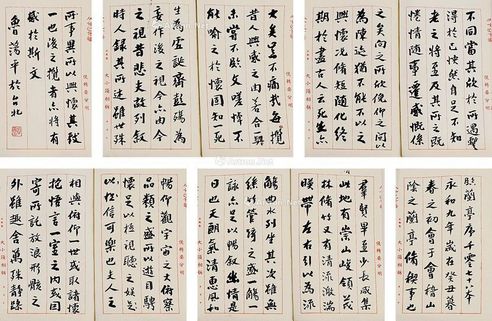 臨蘭亭序千零七十一本
永和九年歲在癸丑暮
春之初會于會稽山
陰之蘭亭脩禊事也
羣賢畢至少長咸集
此地有崇山峻領茂
林脩竹又有清流激湍
暎帶左右引以為流
觴曲水列坐其次雖無
絲竹管弦之盛一觴一
詠亦足以暢敘幽情是
日也天朗氣清惠風和
暢仰觀宇宙之大俯察
品類之盛所以遊目騁
懷足以極視聽之娛
信可樂也夫人之
相與俯仰一世或取諸懷
抱悟言一室之內或因
寄所託放浪形骸之
外雖趣舍萬殊靜躁
不同當其欣於所遇暫
得於己快然自足不知
老之將至及其所之既
惓情隨事遷感慨係
之矣向之所欣俛仰之間以
為陳迹猶不能不以之
興懷況脩短隨化終
期於盡古人云死生亦
大矣豈不痛哉每攬
昔人興感之由若合一契
未嘗不臨文嗟悼不
能喻之於懷固知一死
生為虛誕齊彭殤為
妄作後之視今亦由今
之視昔悲夫故列敘
時人錄其所述雖世殊
事異所以興懷其致
一也後之攬者亦將有
感於斯文
魯蕩平於台北